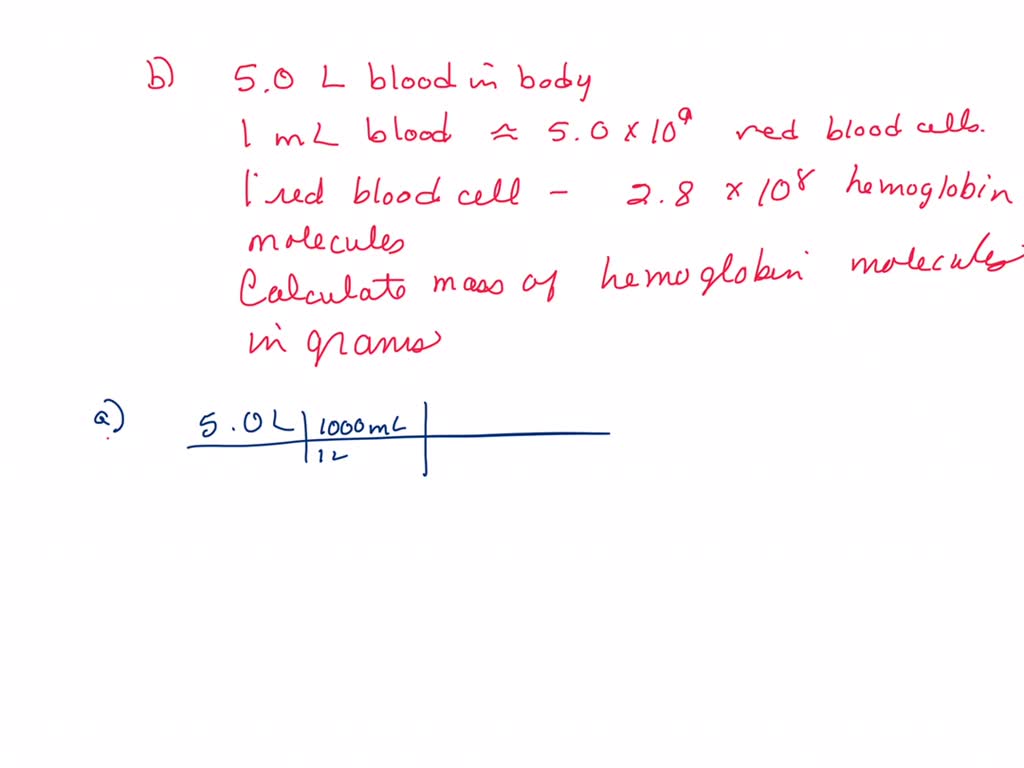 b) 5.0 L blood in body
1 mL blood ≈ 5.0 × 10⁹ red blood cells.
1 red blood cell – 2.8 × 10⁸ hemoglobin
molecules
Calculate mass of hemoglobin molecules
in grams
a) 5.0 L | 1000 mL |
1 L